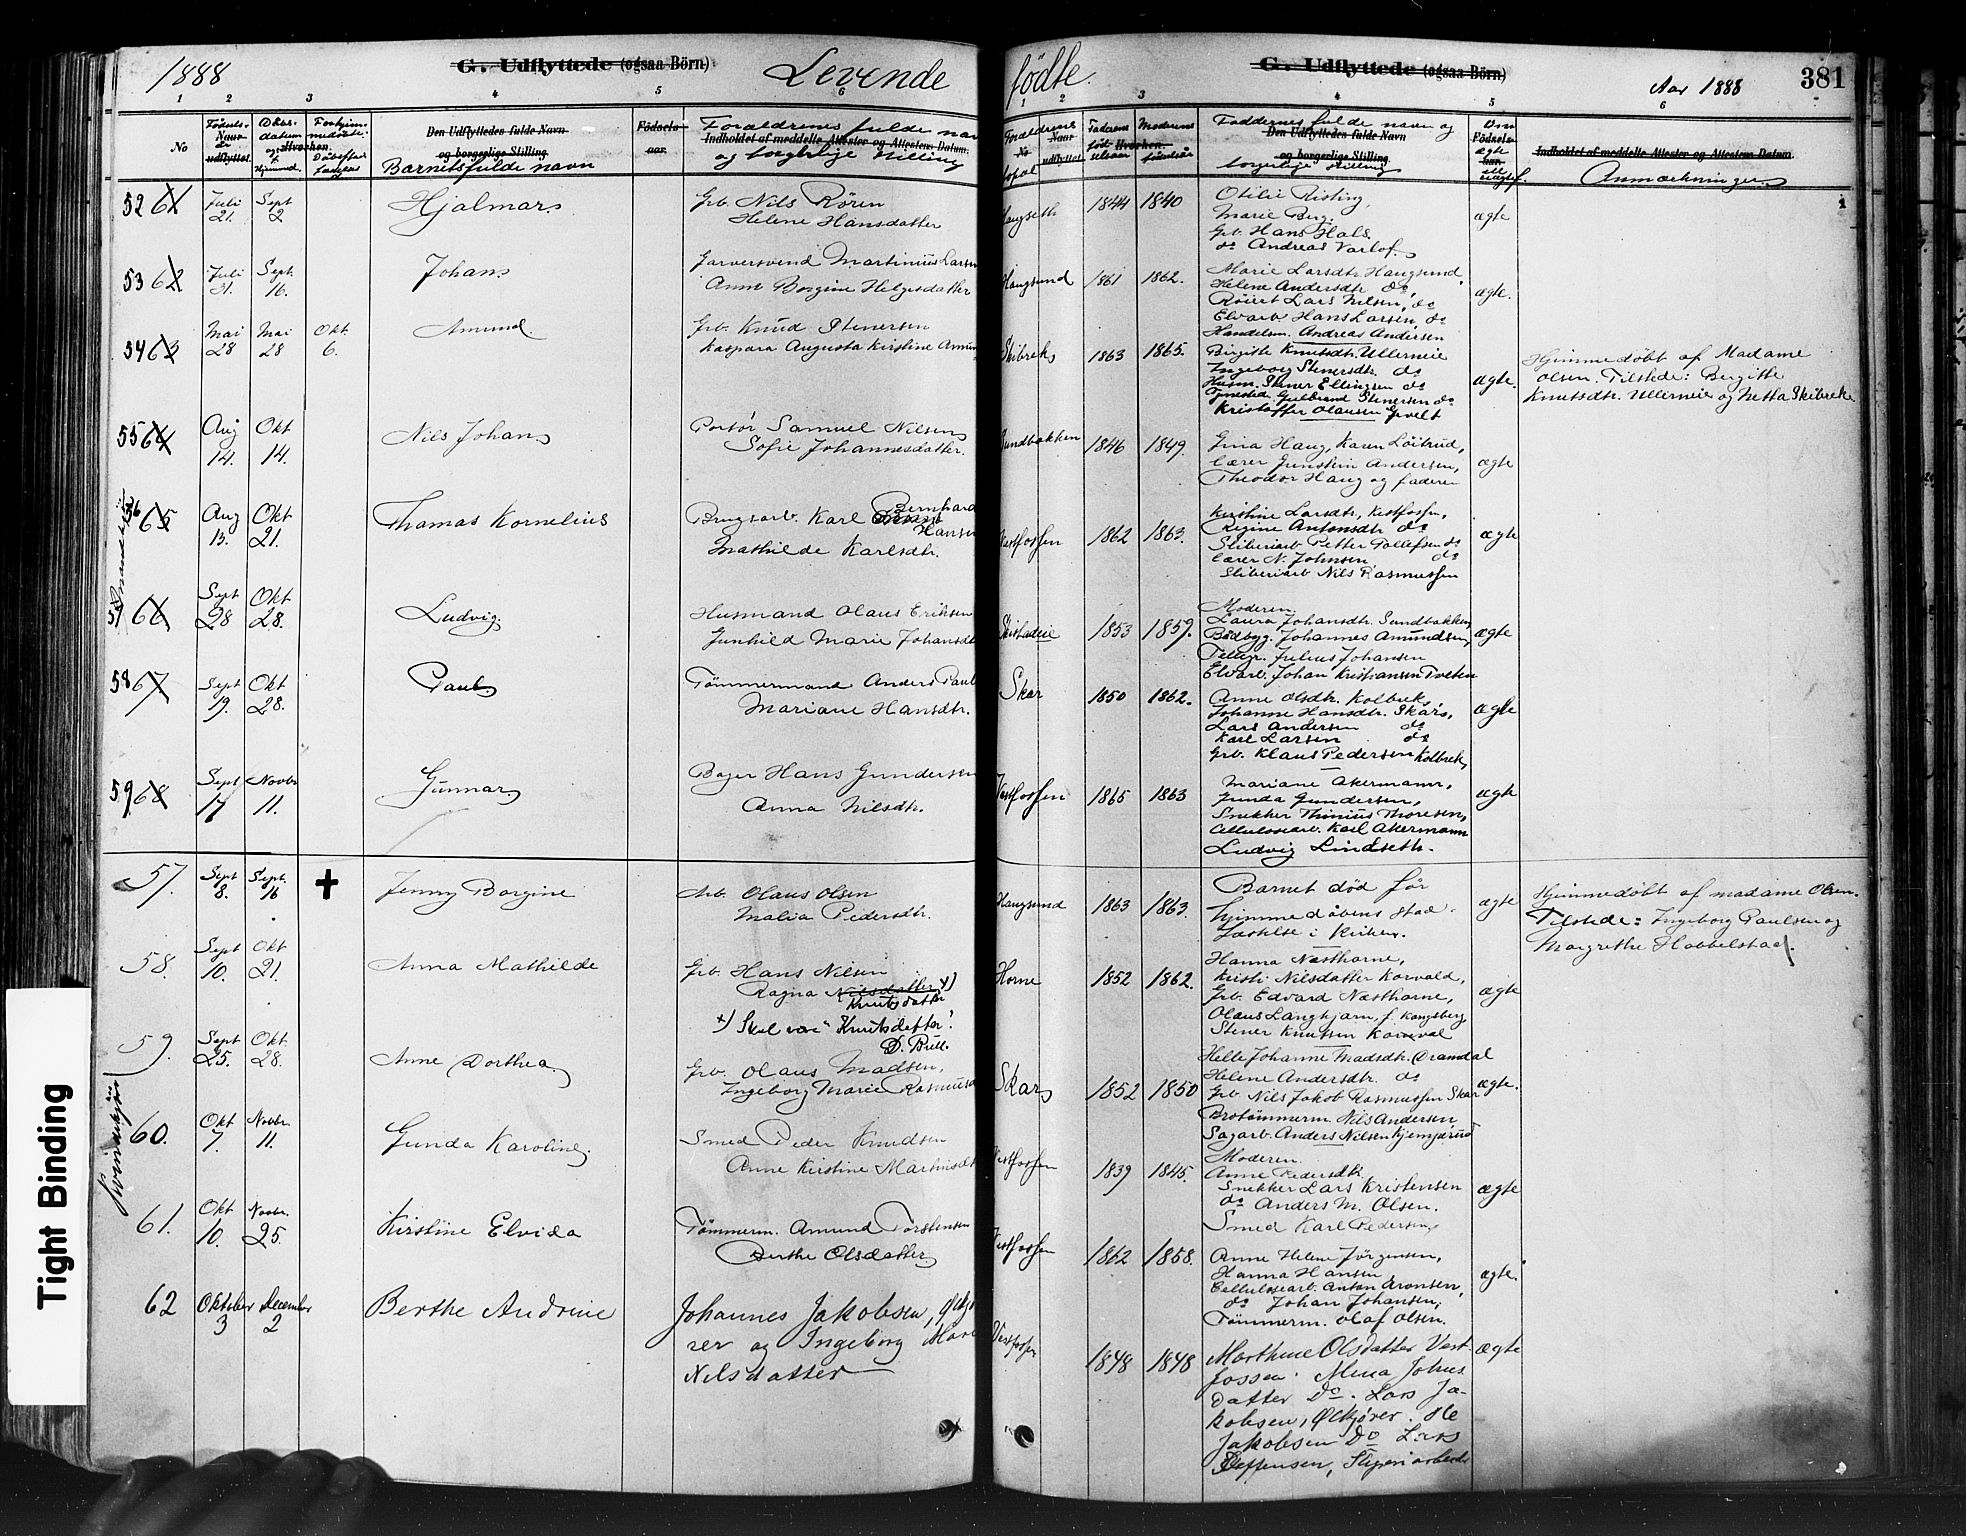 1888
G. Udflyttede (ogsaa Börn)
Levende
1 2 3 4 5 6
No
Fødsels-
Den Udflyttedes fulde Navn
og borgerlige Stilling
Barnets fulde navn
Fødsels-
aar.
Forældrenes fulde
Indholdet af meddelte Attester og Attesters Datum.
og borgerlige Stilling
52 61 Juli 21. Sept 2 Hjalmar Grb. Nils Rören
Helene Hansdatter
53 62 Juli 31. Sept. 16. Johan Garversvend Martinius Larsen
Anne Borgine Helgesdatter
54 63 Mai 28 Mai 28 Okt. 6. Amund Grb. Knud Stenersen
Kaspara Augusta Kirstine
55 64 Aug 14. Okt 14. Nils Johan Samuel Nilsen
Sofie Johannesdatter.
56 65 Aug 13. Okt 21. Thomas Kornelius Brugsarb. Karl Bernhard
Hansen
Mathilde Karlsdtr.
57 66 Sept 28 Okt 28. Ludvig Husmand Olaus Eriksen
Gunhild Marie Johansdtr
58 67 Sept 19. Okt 28. Paul Tømmermand Anders Paul
Mariane Hansdtr.
59 68 Sept 17 Novbr 11. Gunnar Bager Hans Gundersen
Anna Nilsdtr.
57. Sept 8. Sept. 16 Jenny Borgine Arb. Olaus Olsen
Malia Pedersdtr.
58. Sept 10. Okt 21. Anna Mathilde Grb. Hans Nilsen
Ragna Nilsdatter x)
Knutsdatter
x) Skal være "Knutsdatter".
59. Sept 25. Okt 28. Anne Dorthea Grb. Olaus Madsen,
Ingeborg Marie
60. Okt 7. Novbr. 11. Gunda Karoline Smed Peder Knudsen
Anne Kirstine
61. Okt 10. Novbr. 25. Kirstine Elvida Tømmerm. Amund Torstensen
Berthe Olsdatter
62 Oktober 3 December 2 Berthe Andrine Johannes Jakobsen,
rer og Ingeborg
Nilsdatter
Tight Binding
fødte.
G. Udflyttede (ogsaa Börn)
Aar 1888
381
1 2 3 4 5 6
Faddernes fulde navn og
Den Udflyttedes fulde Navn
og borgerlige Stilling
borgerlige stilling
Fødsels-
Indholdet af meddelte Attester og Attesters Datum.
Anmærkninger
Haugseth 1844 1840 Otilie Risting,
Marie Berg.
Grb. Hans Hals.
do Andreas Varlo ægte
Haugsund 1861 1862. Marie Larsdtr. Haugsund,
Helene Andersdtr. do,
Lars Nilsen, do
Elvarb. Hans Larsen, do
Handelsm. Andreas Andersen ægte.
Skibrek 1863 1865. Birgitte Knutsdtr. Ullerneie
Ingeborg Stenersdtr. do
Husm. Stener Ellingsen do
Gulbrand Stenersen do
Kristoffer Olausen ægte.
Hjemmedøbt af Madame
Olsen. Tilstede: Birgitte
Knutsdtr. Ullerneie og Netta Skibrek
Sundbakken 1846 1849. Gina Haug, Karen Løitrud,
Lærer Gunstein Andersen,
Theodor Haug og faderen ægte
Vestfossen 1862 1863. Kirstine Larsdtr, Vestfossen,
Regine Antonsdtr do
Sliberiarb. Petter Tollefsen do
Lærer N. Johnsen do
Sliberiarb. Nils Rasmussen ægte
1853 1859. Moderen.
Laura Johansdtr. Sundbakken
Bødbyg. Johannes Amundsen,
Julius Johansen
Elvarb. Johan Kristiansen Tveten ægte
Skar 1850 1862. Anne Olsdtr. Kolbrek,
Johanne Hansdtr. Skar,
Lars Andersen do
Karl Larsen do
Grb. Klaus Pedersen Kolbrek, ægte
Vestfossen 1865 1863 Mariane Akermann,
Gunda Gundersen,
Snekker Thinius Thoresen,
Cellulosearb. Karl Akermann
Ludvig Lindseth. ægte
Haugsund 1863 1863. Barnet død før
hjemmedåbens stad-
fæstelse i Kirken. ægte
Hjemmedøbt af madame Olsen.
Tilstede: Ingeborg Paulsen og
Margrethe Hobbelstad.
Horne 1852 1862. Hanna Næsthorne,
Kirsti Nilsdatter Korvald,
Grb. Edvard Næsthorne,
Olaus Langkjærn, f. Kongsberg
Stener Knutsen Korvald ægte
Skar 1852 1850 Helle Johanne Madsdtr.
Helene Andersdtr. do
Grb. Nils Jakob Rasmussen Skar
Brotømmerm. Nils Andersen
Sagarb. Anders Nilsen ægte.
Vestfossen 1839 1845. Moderen.
Anne Pedersdtr.
Snekker Lars Kristensen
do Anders M. Olsen.
Smed Karl Pedersen, ægte
Vestfossen 1862 1858. Anne Helene Jørgensen,
Hanna Hansen
Cellulosearb. Anton Aronsen,
do Johan Johansen,
Tømmerm. Olaf Olsen. ægte.
Vestfossen 1848 1848 Marthine Olsdatter Vest-
fossen. Mina Johns
datter Do. Lars Ja-
kobsen,
Jakobsen Do Lars
Steffensen, Sliperiarbeider ægte